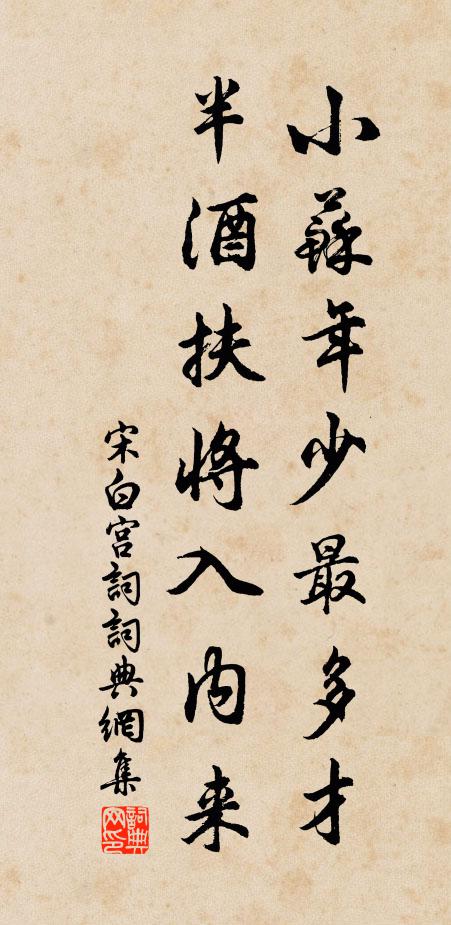 小蘇年少最多才
半酒扶將入内来
宋白宮詞詞典網集
詞典网印